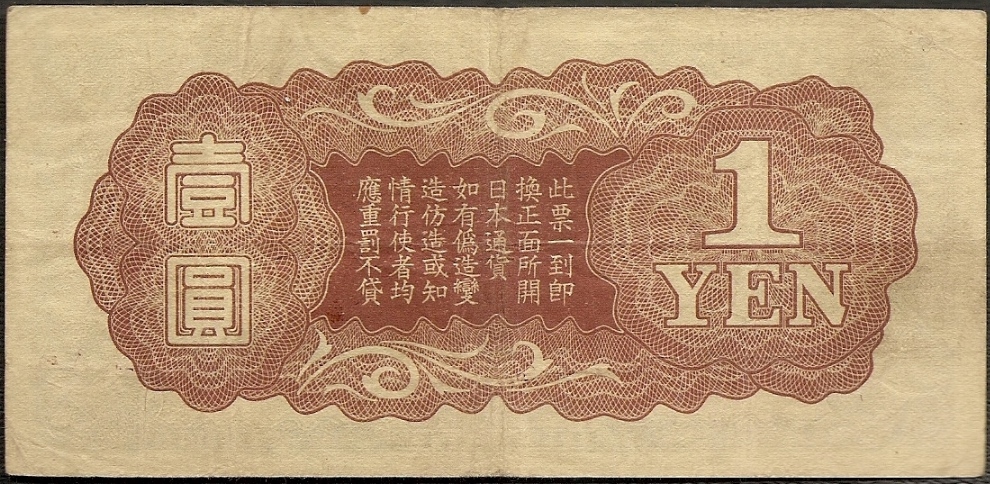 壹圓
此票一到即
換正面所開
日本通貨
如有偽造變
造仿造或知
情行使者均
應重罰不貸
1
YEN